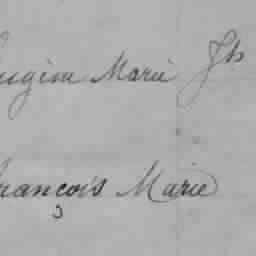 Eugène Marie Jh
François Marie